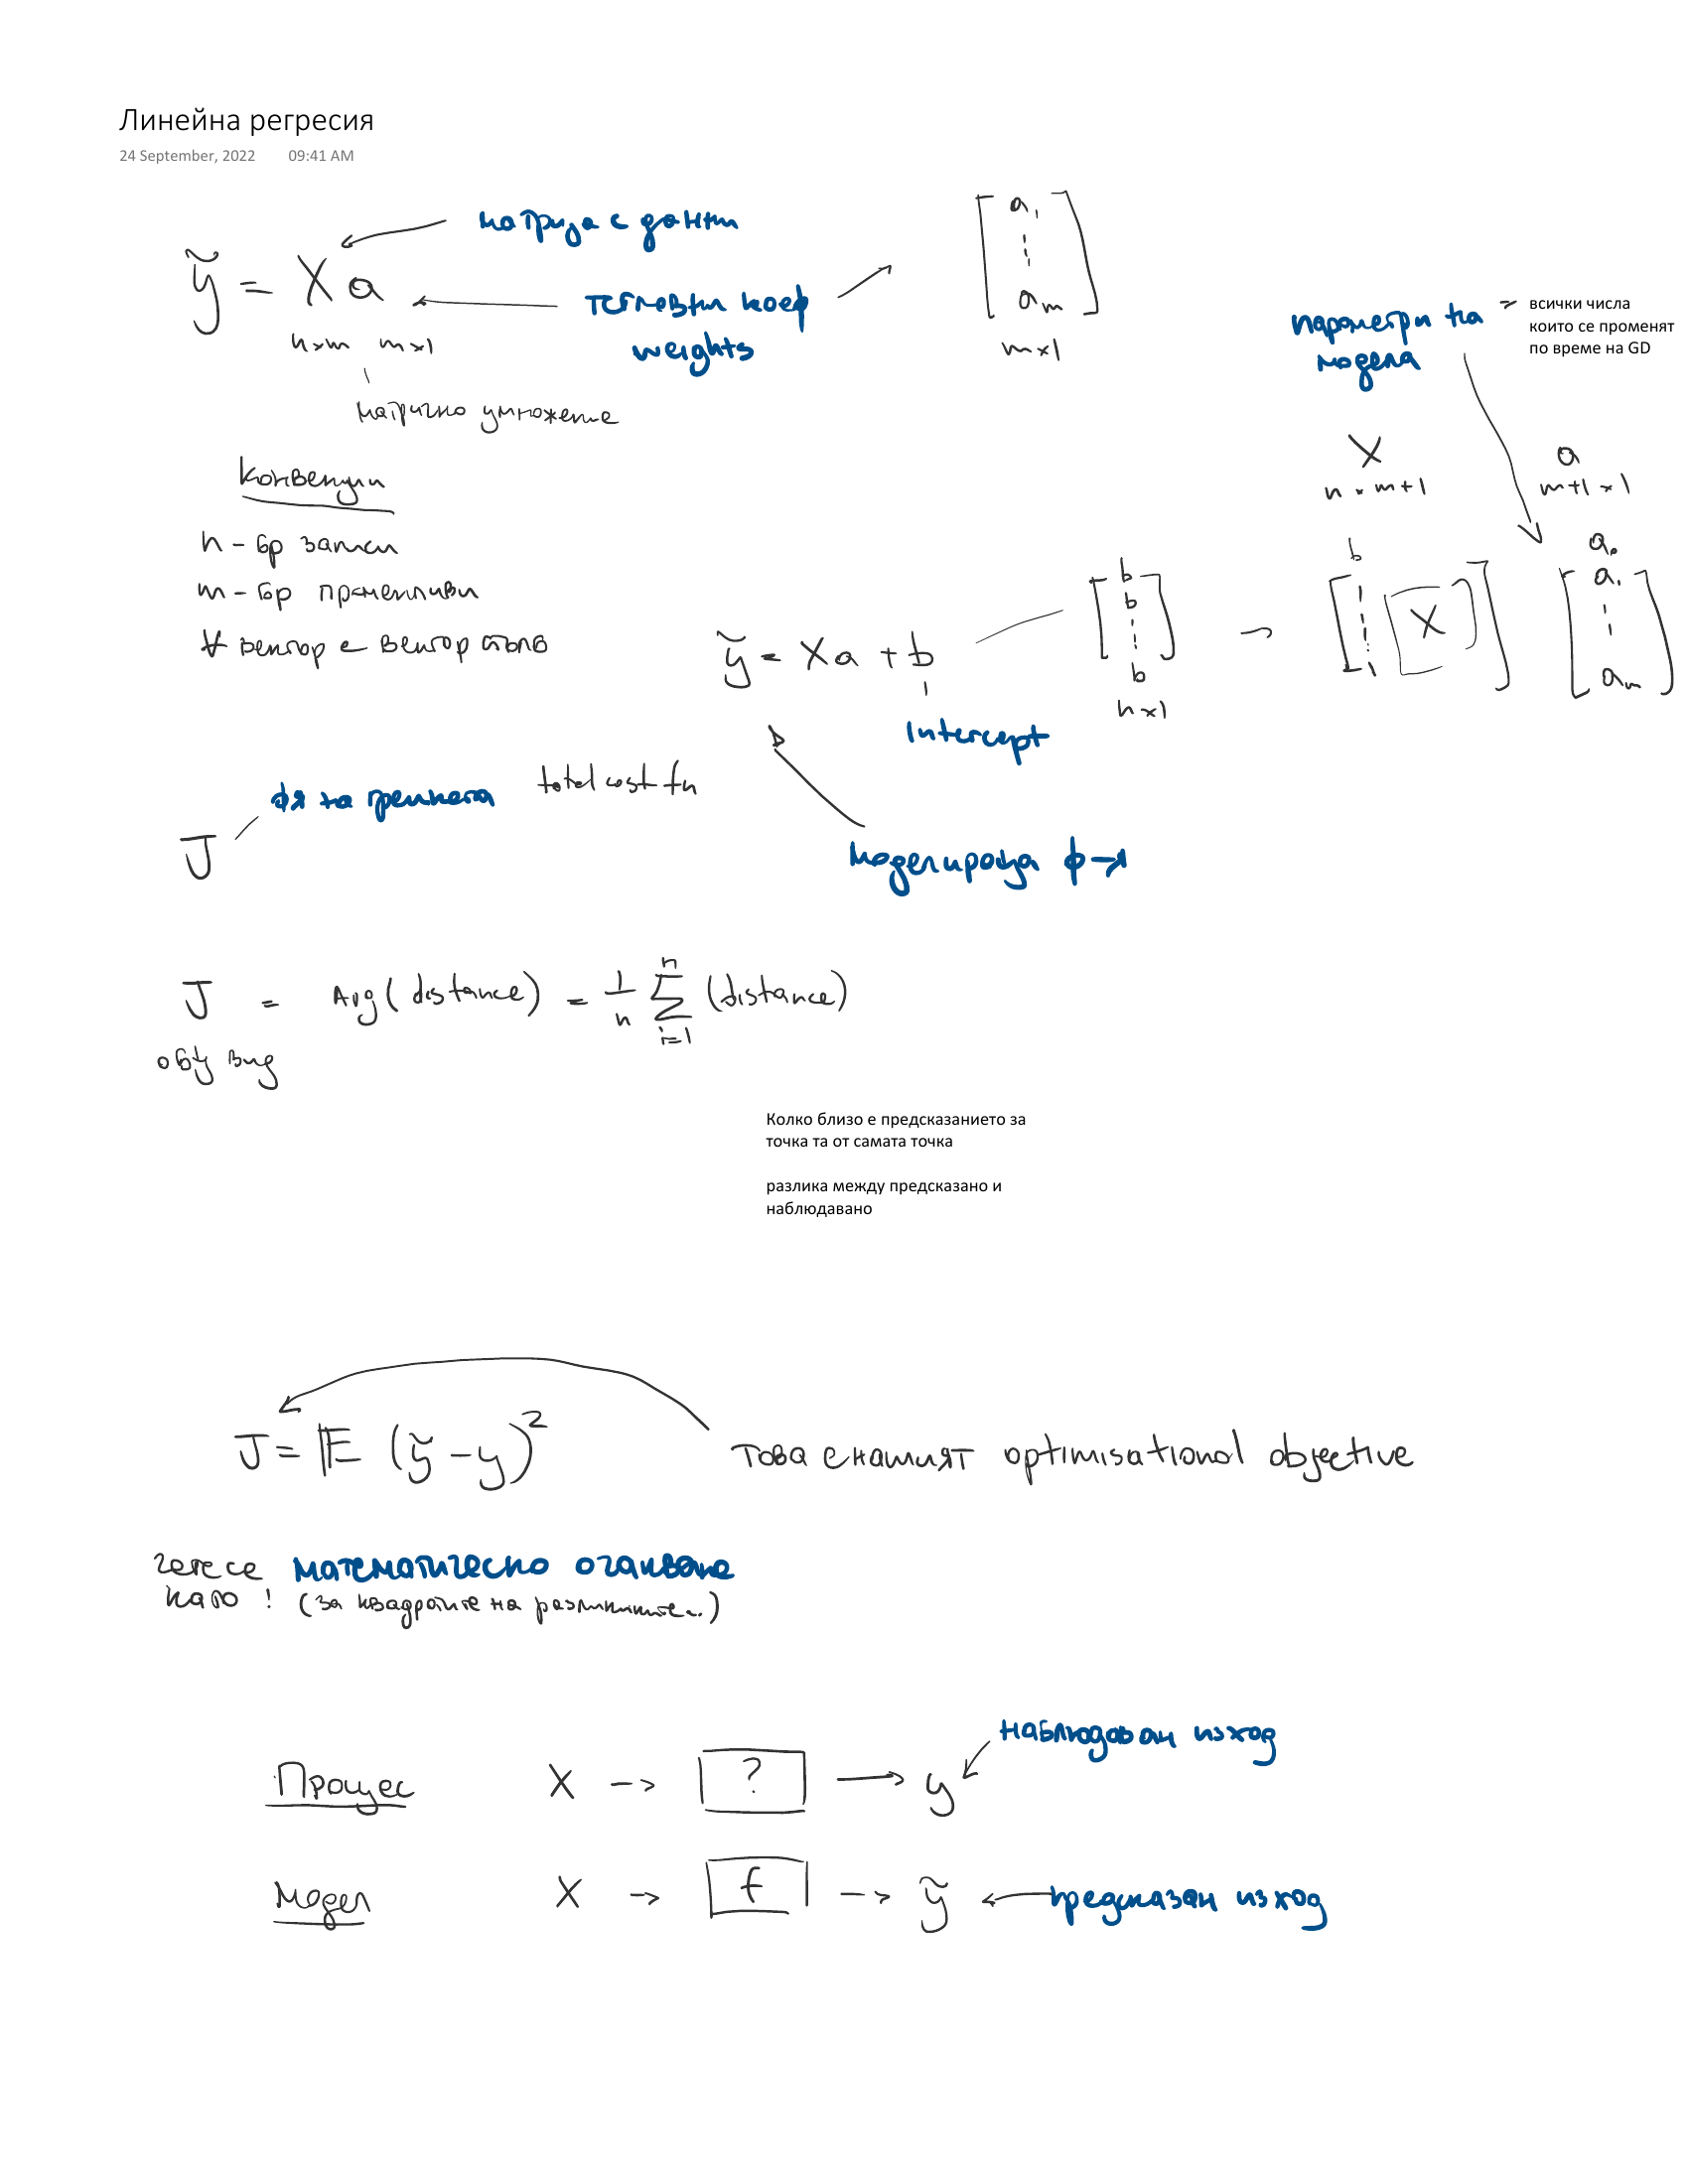 Линейна регресия
24 September, 2022 09:41 AM
матрица с данни
ỹ = Xa
n×m m×1
тегловни коеф
weights
матрично умножение
a₁
⋮
aₘ
m×1
параметри на
модела
всички числа
които се променят
по време на GD
Конвенции
n - бр записи
m - бр променливи
∀ вектор е вектор стълб
X a
n × m+1 m+1 × 1
ỹ = Xa + b
Intercept
b
b
⋮
b
n×1
b
1
⋮
1
X
a₀
a₁
⋮
aₘ
ф-я на грешката total cost fn
J
моделираща ф-я
J = Avg(distance) = 1/n ∑ i=1 n (distance)
общ вид
Колко близо е предсказанието за
точка та от самата точка
разлика между предсказано и
наблюдавано
J = 𝔼 (ỹ - y)²
Това е нашият optimisational objective
чете се математическо очакване
като ! (за квадратите на разликите..)
наблюдаван изход
Процес X -> ? -> y
Модел X -> f -> ỹ
предсказан изход